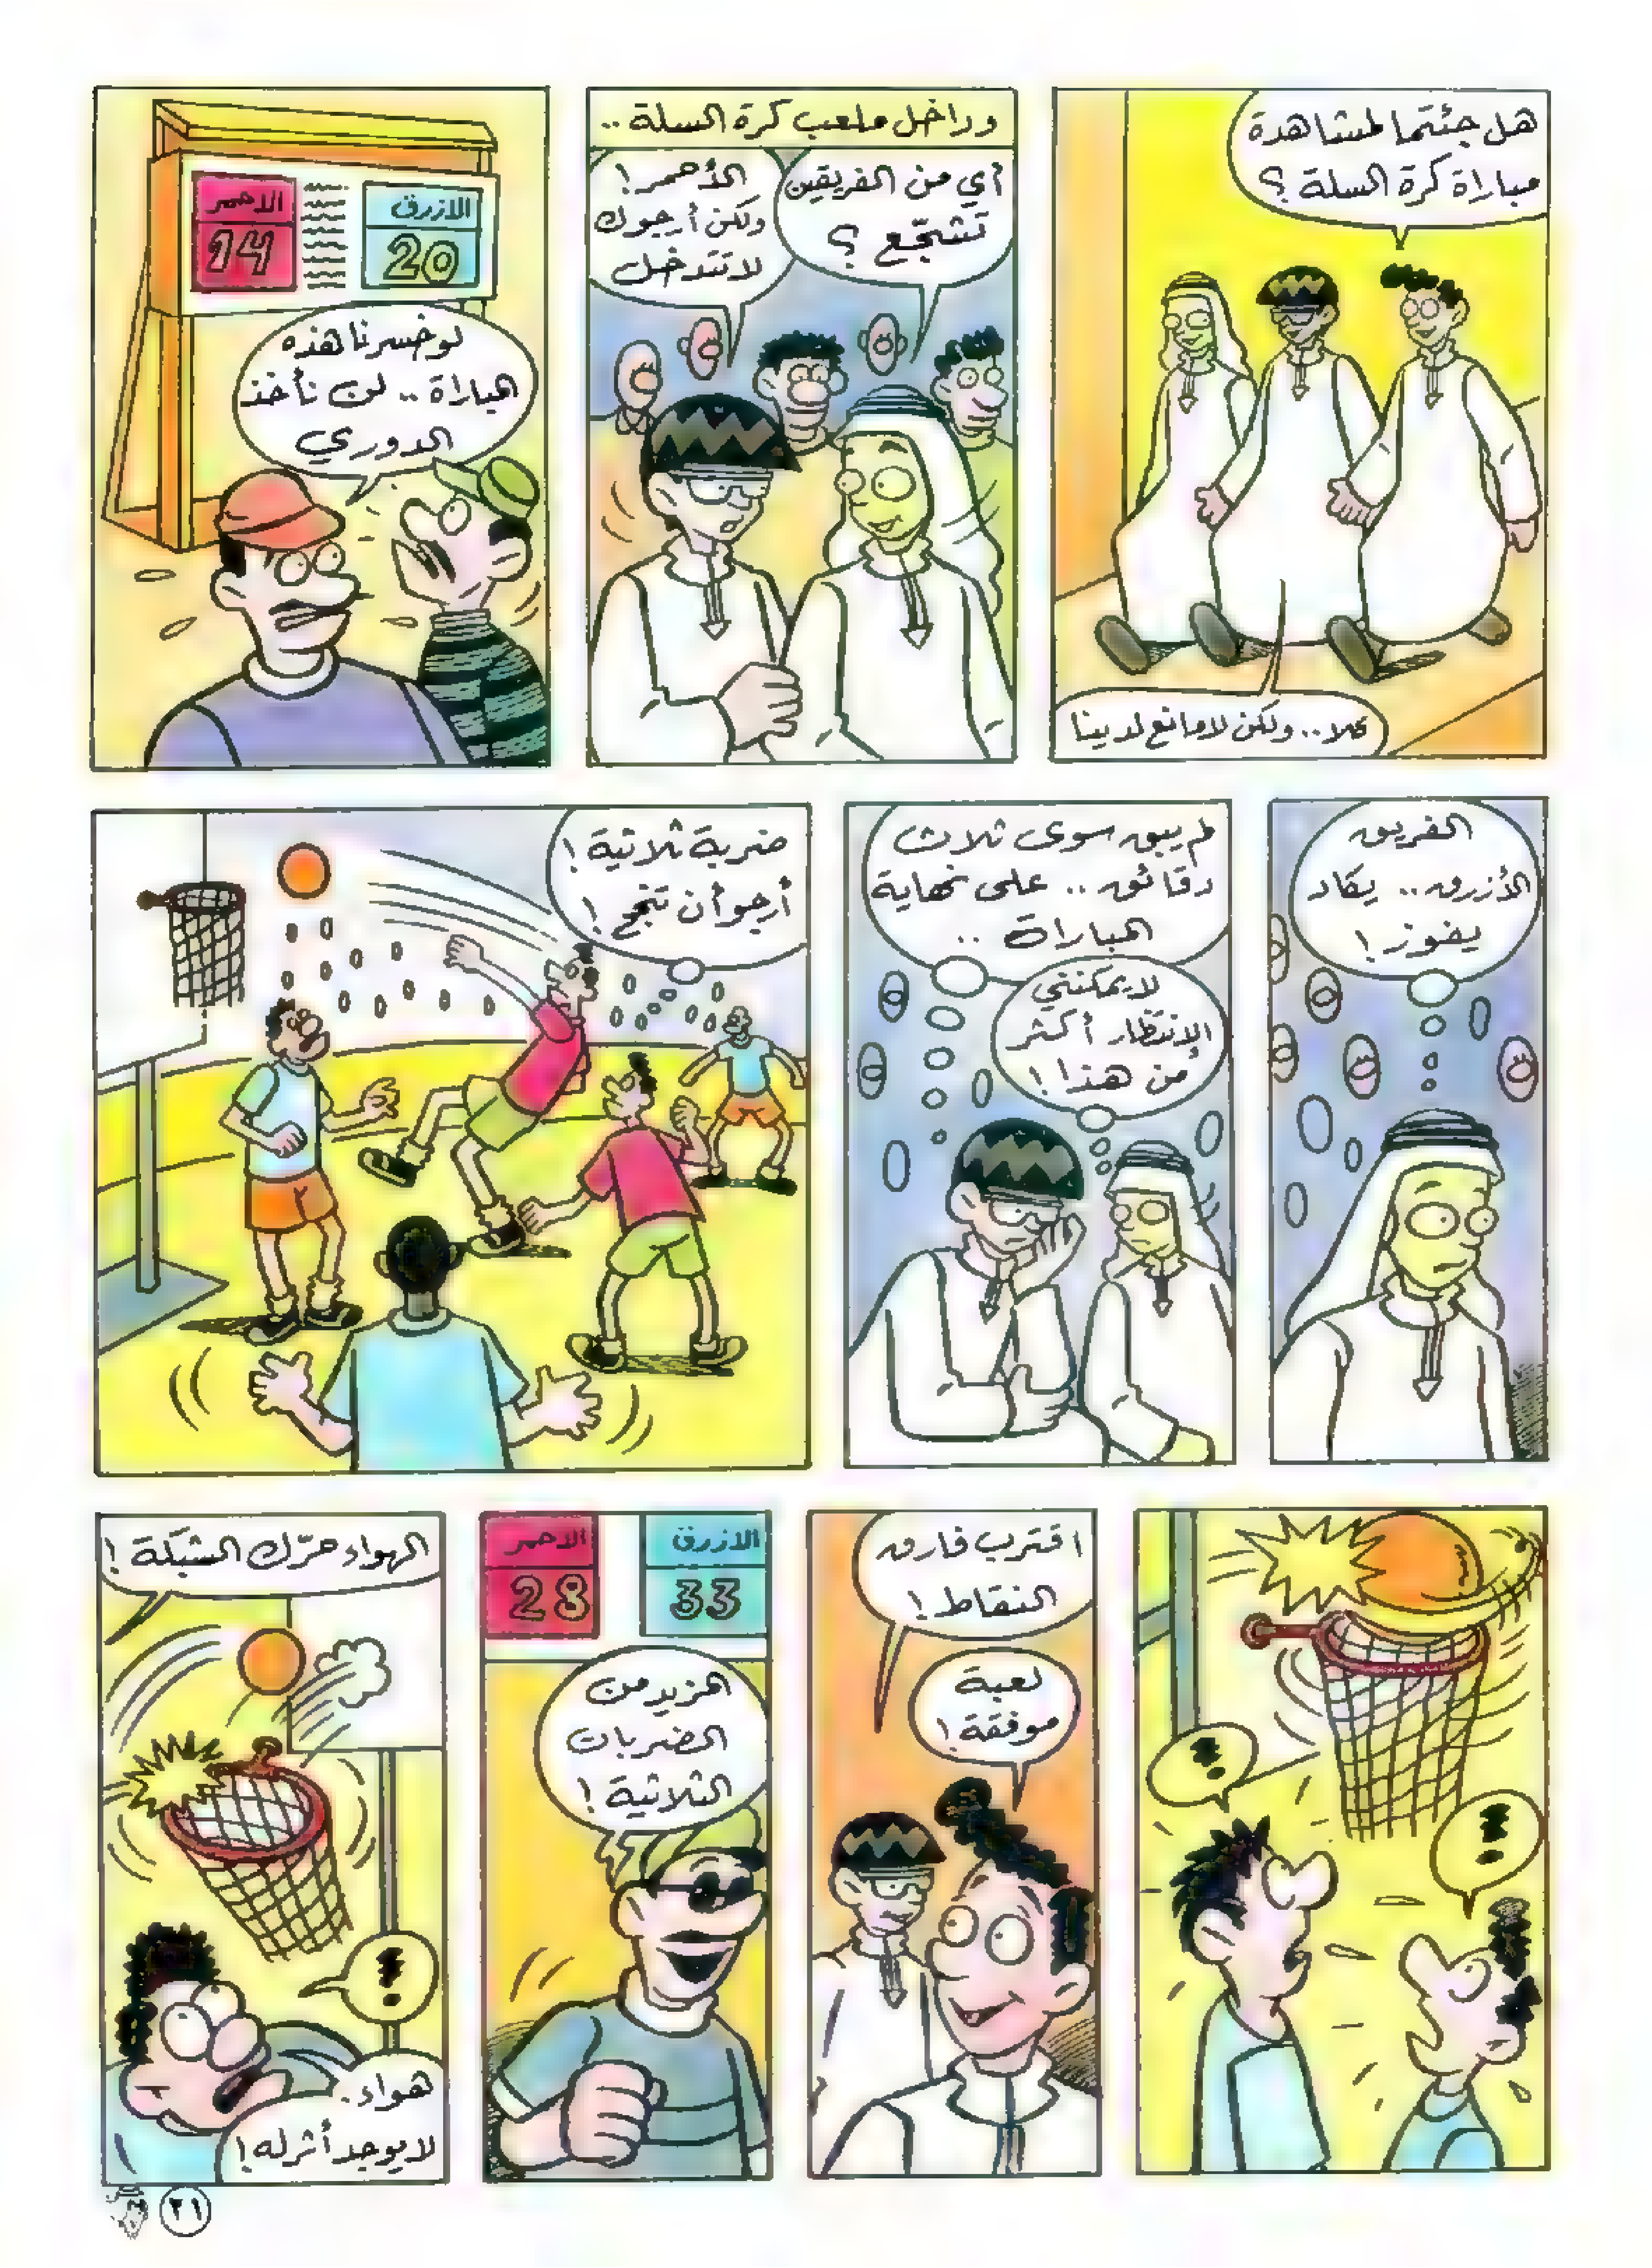 هل جئتما لمشاهدة
مباراة كرة السلة ؟
كلا.. ولكن لا مانع لدينا
وداخل ملعب كرة السلة ..
أي من الفريقين
تشجّع ؟
الأحمر !
ولكن أرجوك
لا تتدخل
الازرق
20
الاحمر
14
لو خسرنا هذه
المباراة .. لن نأخذ
الدوري
الفريق
الأزرق .. يكاد
يفوز !
لم يبق سوى ثلاث
دقائق .. على نهاية
المباراة ..
لا يمكنني
الإنتظار أكثر
من هذا !
ضربة ثلاثية !
أرجو أن تنجح !
!
!
اقترب فارق
النقاط !
لعبة
موفقة !
الازرق
33
الاحمر
28
المزيد من
الضربات
الثلاثية !
الهواء حرّك الشبكة !
!
هواء.
لا يوجد أثر له !
٢١